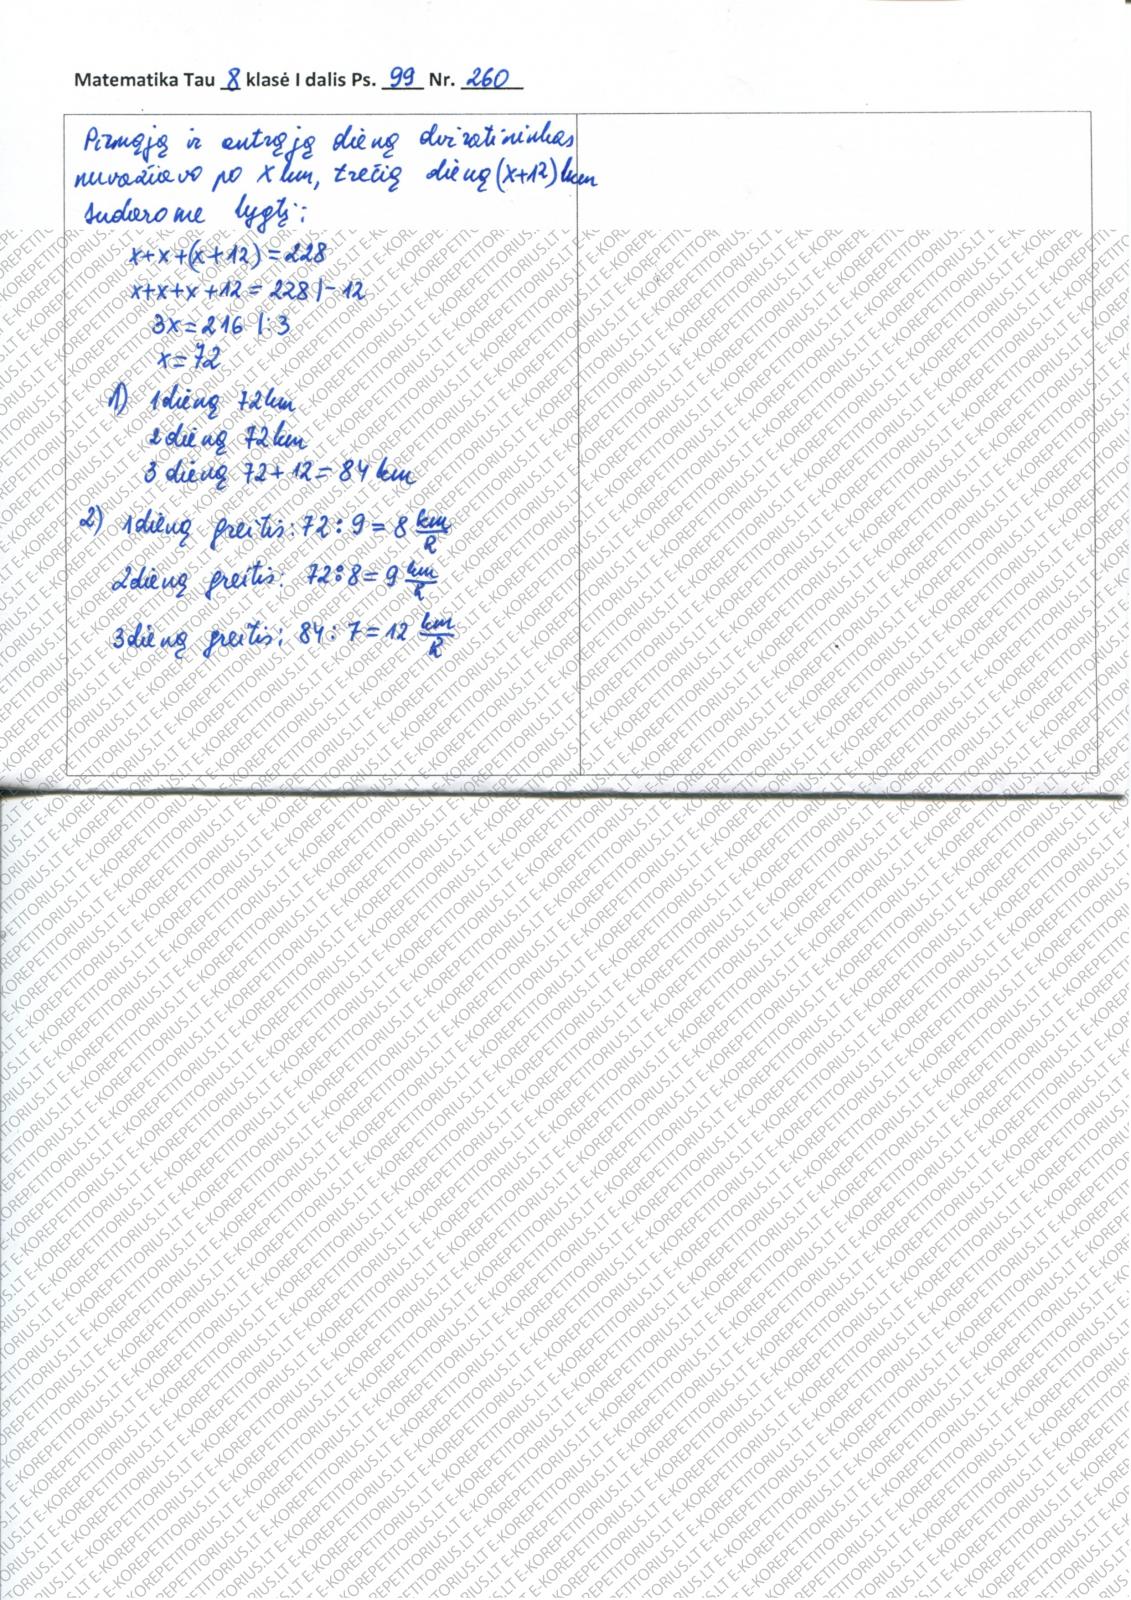 Matematika Tau 8 klasė I dalis Ps. 99 Nr. 260
Pirmąją ir antrąją dieną dviratininkas
nuvažiavo po x km, trečią dieną (x+12) km
Sudarome lygtį:
x+x+(x+12)=228
x+x+x+12=228 |-12
3x=216 |:3
x=72
1) 1 dieną 72 km
2 dieną 72 km
3 dieną 72+12=84 km
2) 1 dieną greitis: 72:9=8 km/h
2 dieną greitis: 72:8=9 km/h
3 dieną greitis: 84:7=12 km/h
E-KOREPETITORIUS.LT